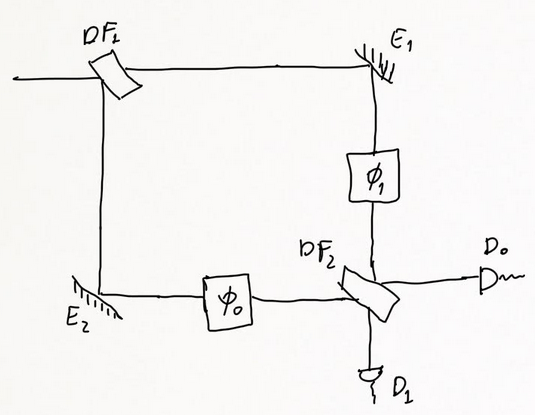 DF₁
E₁
ϕ₁
DF₂
D₀
E₂
φ₀
D₁